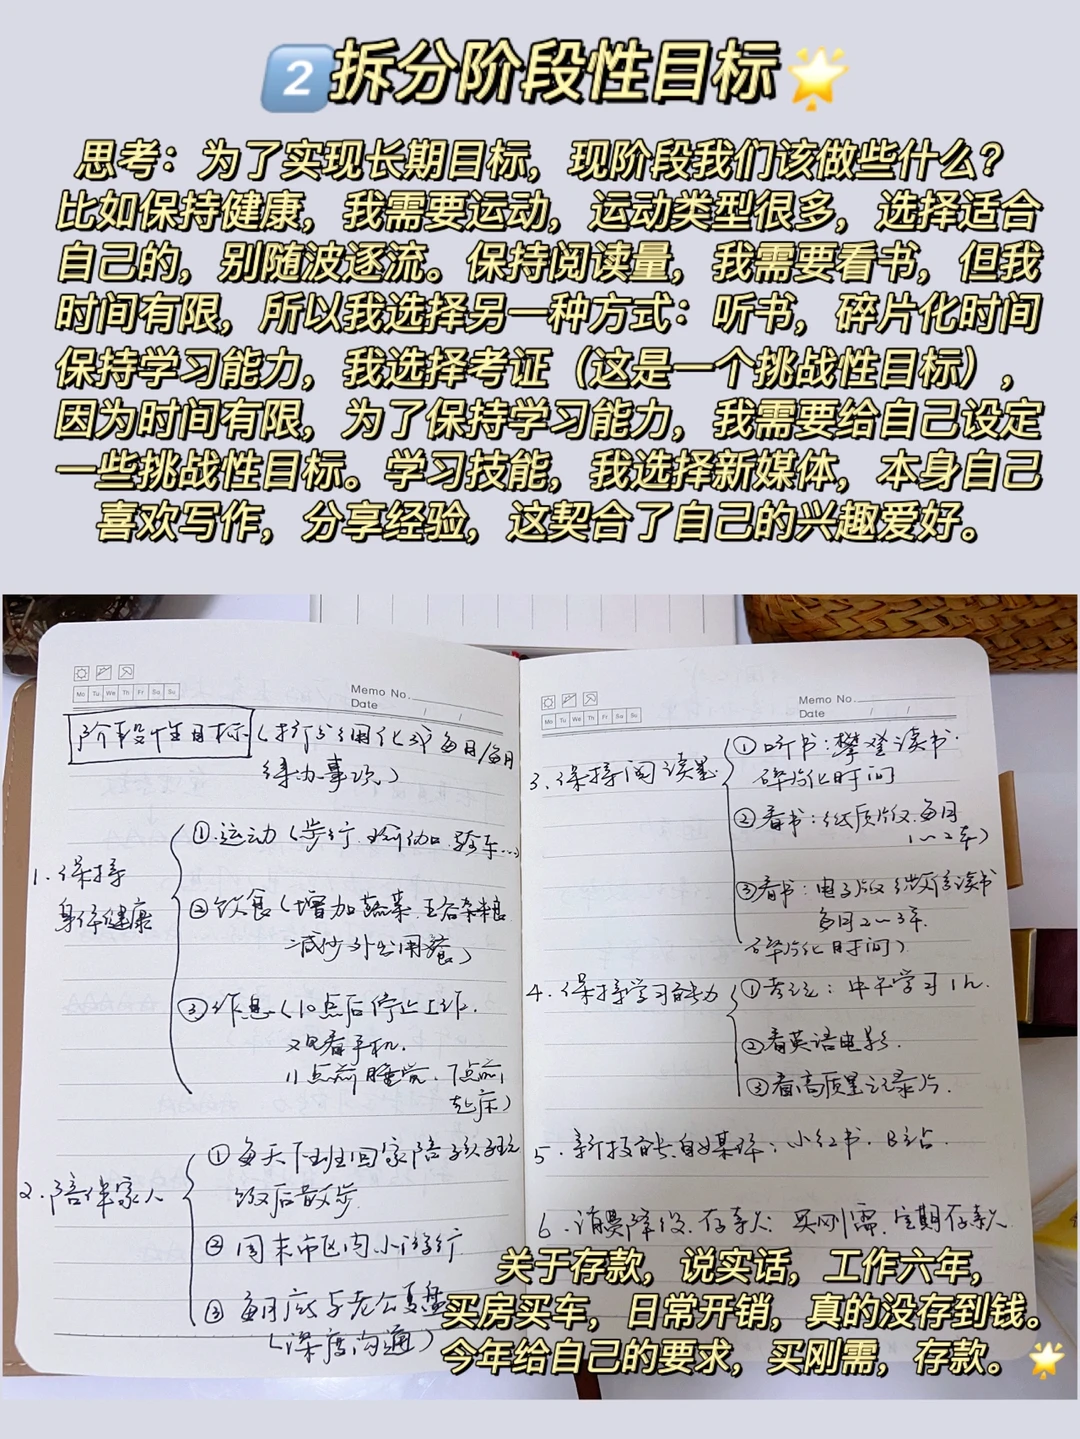 2 拆分阶段性目标
思考：为了实现长期目标，现阶段我们该做些什么？
比如保持健康，我需要运动，运动类型很多，选择适合
自己的，别随波逐流。保持阅读量，我需要看书，但我
时间有限，所以我选择另一种方式：听书，碎片化时间
保持学习能力，我选择考证（这是一个挑战性目标），
因为时间有限，为了保持学习能力，我需要给自己设定
一些挑战性目标。学习技能，我选择新媒体，本身自己
喜欢写作，分享经验，这契合了自己的兴趣爱好。
Mo Tu We Th Fr Sa Su
Memo No.
Date / /
阶段性目标（拆分细化成每日/每月
待办事项）
1. 保持
身体健康
①.运动（步行.瑜伽.骑车...）
②饮食（增加蔬菜.五谷杂粮
减少外出用餐）
③作息（10点后停止工作.
不看手机.
11点前睡觉.7点前
起床）
2.陪伴家人
①每天下班回家陪孩子玩
饭后散步.
②周末市区内小游行
③每月底与老公复盘
（深度沟通）
Mo Tu We Th Fr Sa Su
Memo No.
Date / /
3.保持阅读量
①听书:樊登读书.
碎片化时间
②看书:纸质版.每月
1~2本）
③看书:电子版 微信读书
每月2~3本.
碎片化时间）
4.保持学习能力
①考证:中午学习1h.
②看英语电影.
③看高质量记录片.
5.新技能自媒体:小红书.B站.
6.消费降级.存款:买刚需.定期存款.
关于存款，说实话，工作六年，
买房买车，日常开销，真的没存到钱。
今年给自己的要求，买刚需，存款。